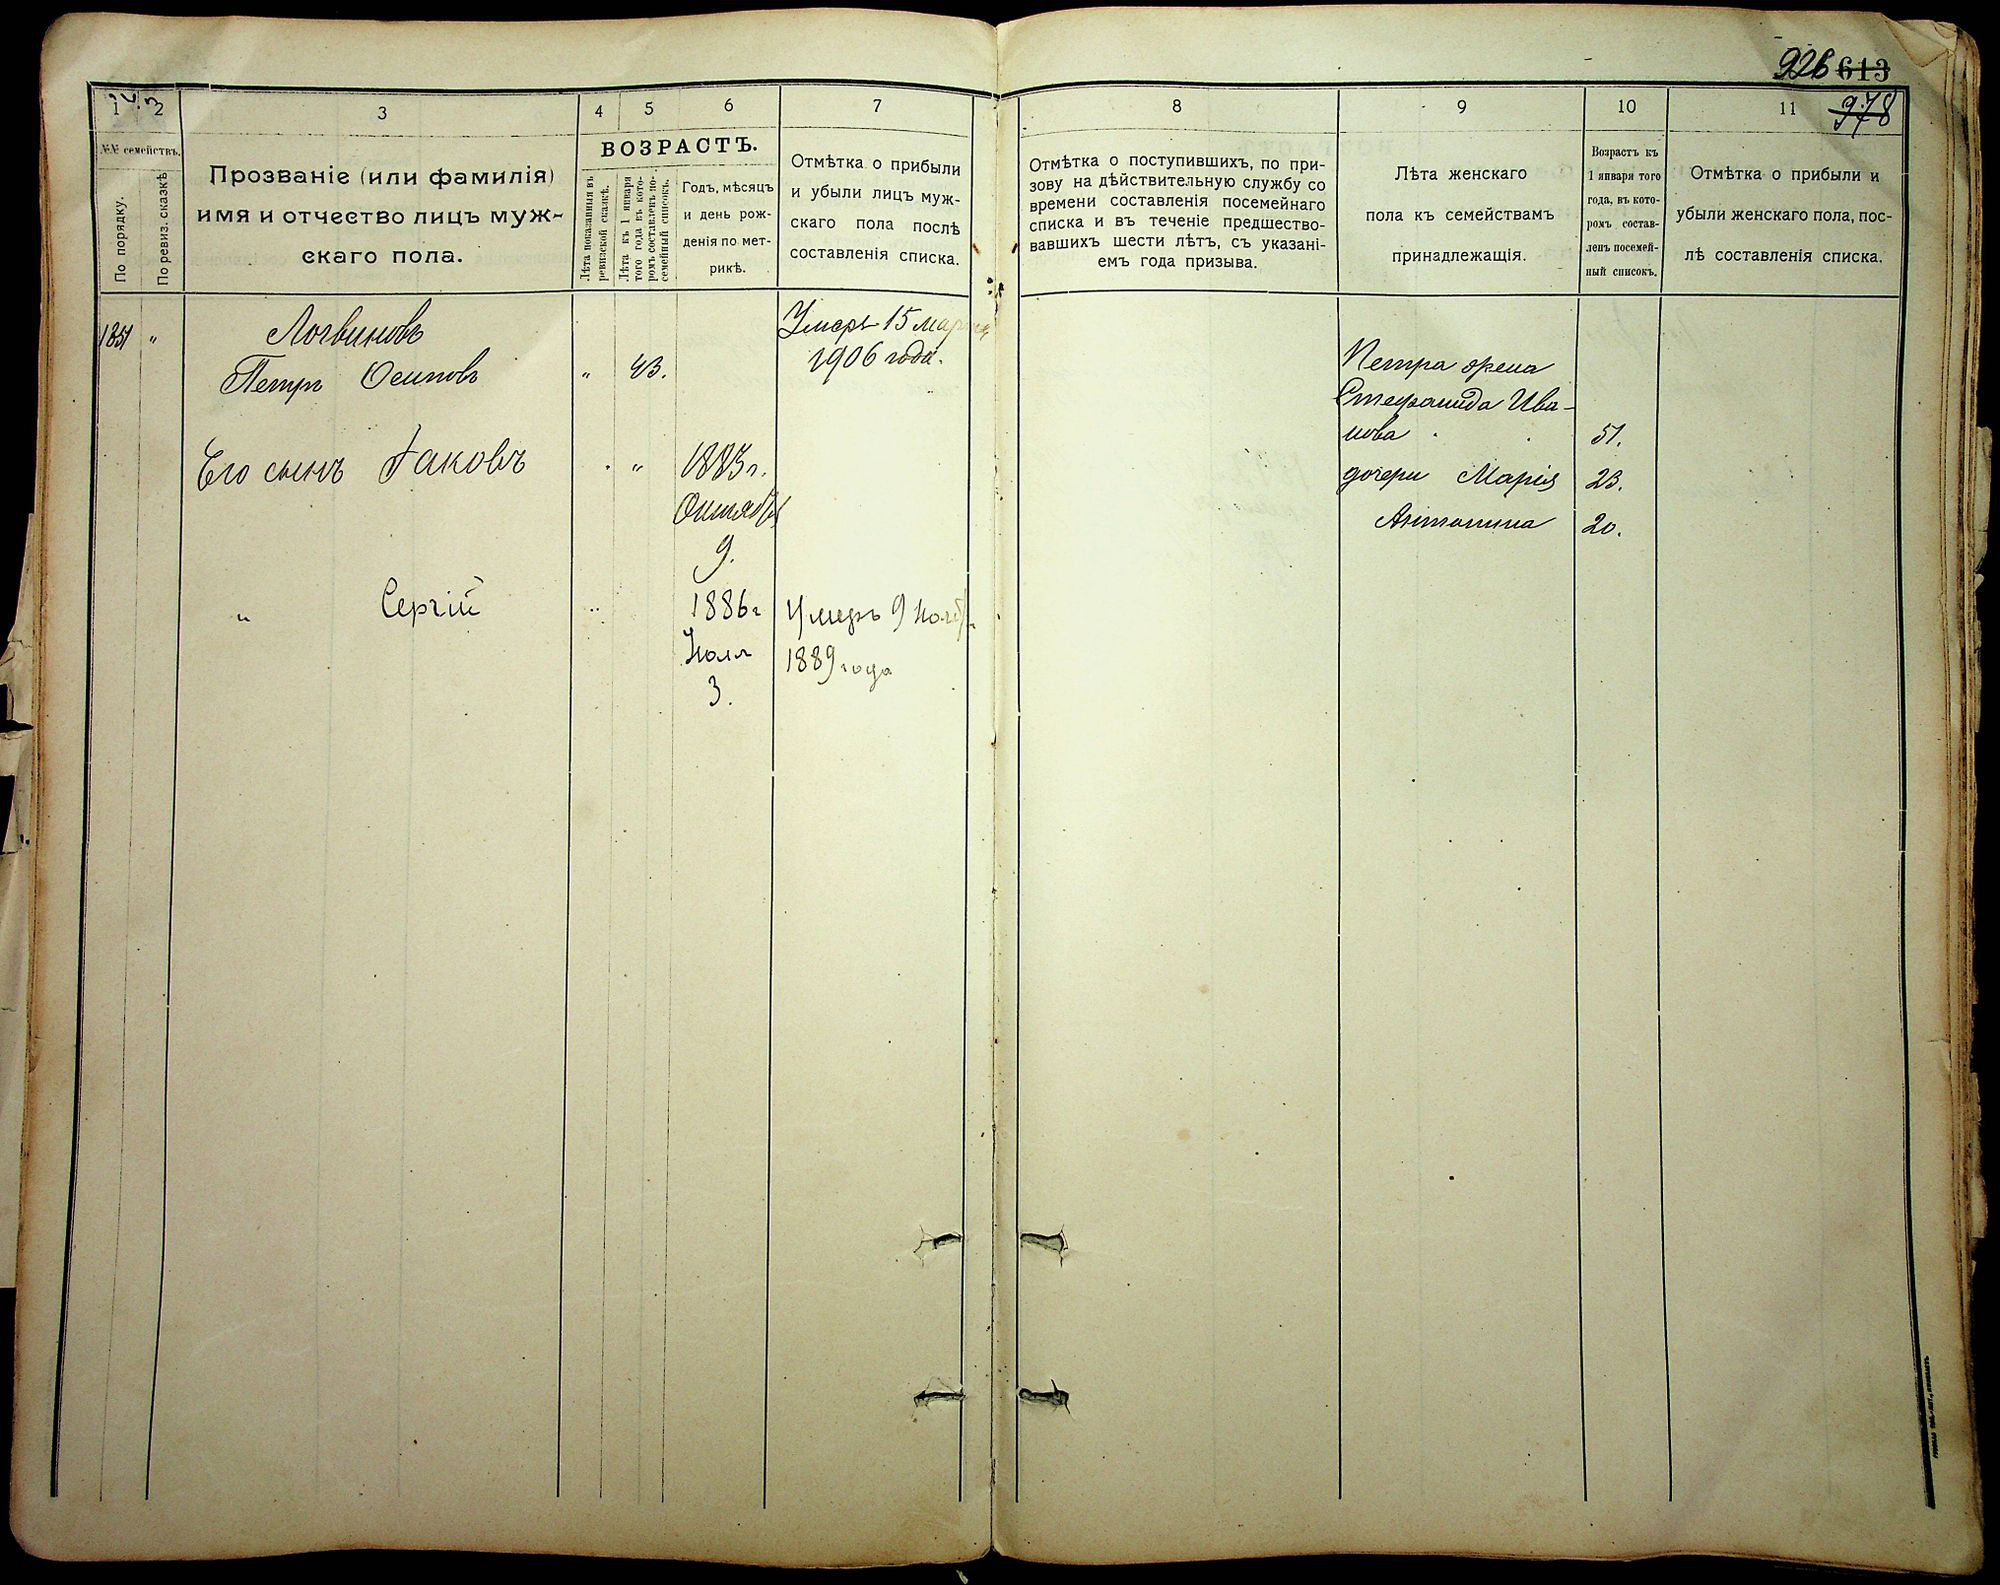 926 613
978
1 2 3 4 5 6 7 8 9 10 11
№№ семействъ.
По порядку.
По ревиз. сказкѣ
Прозваніе (или фамилія)
имя и отчество лицъ муж-
скаго пола.
ВОЗРАСТЪ.
Лѣта показанныя въ
ревизской сказкѣ.
Лѣта къ 1 января
того года въ кото-
ромъ составленъ по-
семейный списокъ.
Годъ, мѣсяцъ
и день рож-
денія по мет-
рикѣ.
Отмѣтка о прибыли
и убыли лицъ муж-
скаго пола послѣ
составленія списка.
Отмѣтка о поступившихъ, по при-
зову на дѣйствительную службу со
времени составленія посемейнаго
списка и въ теченіе предшество-
вавшихъ шести лѣтъ, съ указані-
емъ года призыва.
Лѣта женскаго
пола къ семействамъ
принадлежащія.
Возрастъ къ
1 января того
года, въ кото-
ромъ состав-
ленъ посемей-
ный списокъ.
Отмѣтка о прибыли и
убыли женскаго пола, пос-
лѣ составленія списка.
1351 " Логвиновъ
Петръ Осиповъ " 43.
Умеръ 15 марта
1906 года.
Его сынъ Іаковъ " 1883 г.
Октября
9.
" Сергій " 1886 г
Іюля
3.
Умеръ 9 Ноября
1889 года
Петра жена
Стефанида Ива-
нова 51.
дочери Марія 23.
Антонина 20.